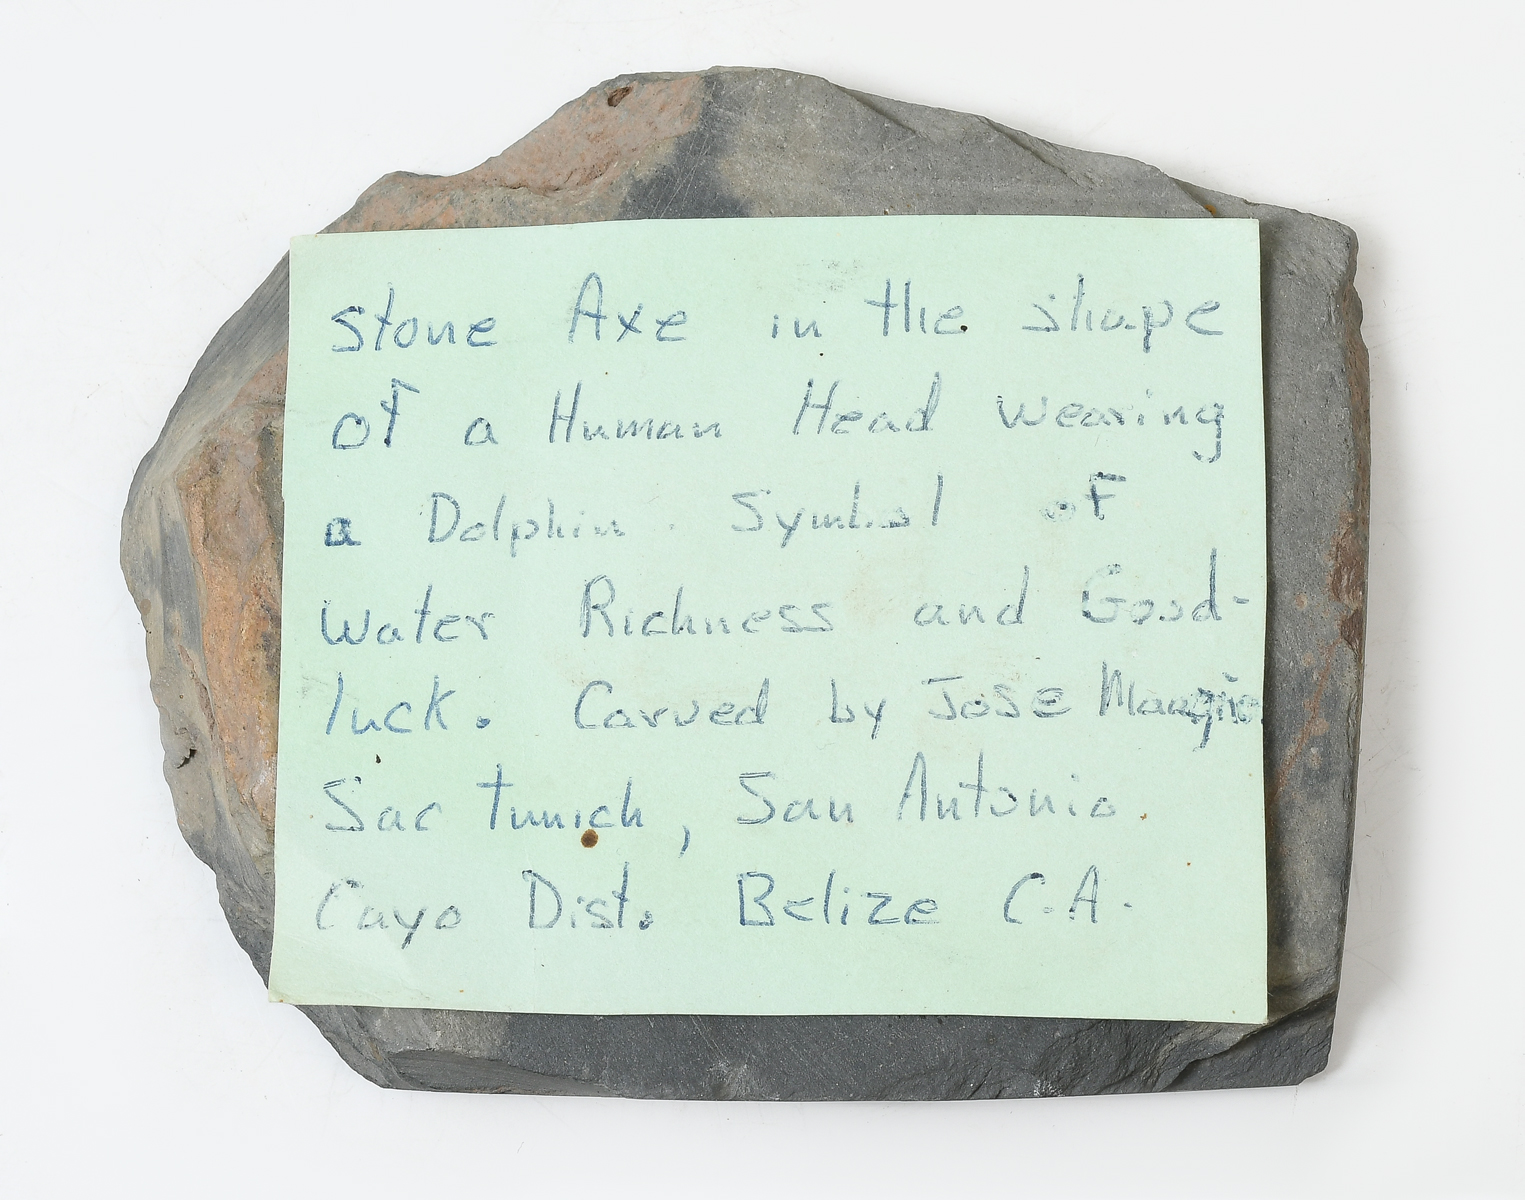 Stone Axe in the shape
of a Human Head wearing
a Dolphin. Symbol of
Water Richness and Good-
luck. Carved by Jose Magaña
Sac Tunich, San Antonio.
Cayo Dist. Belize C.A.